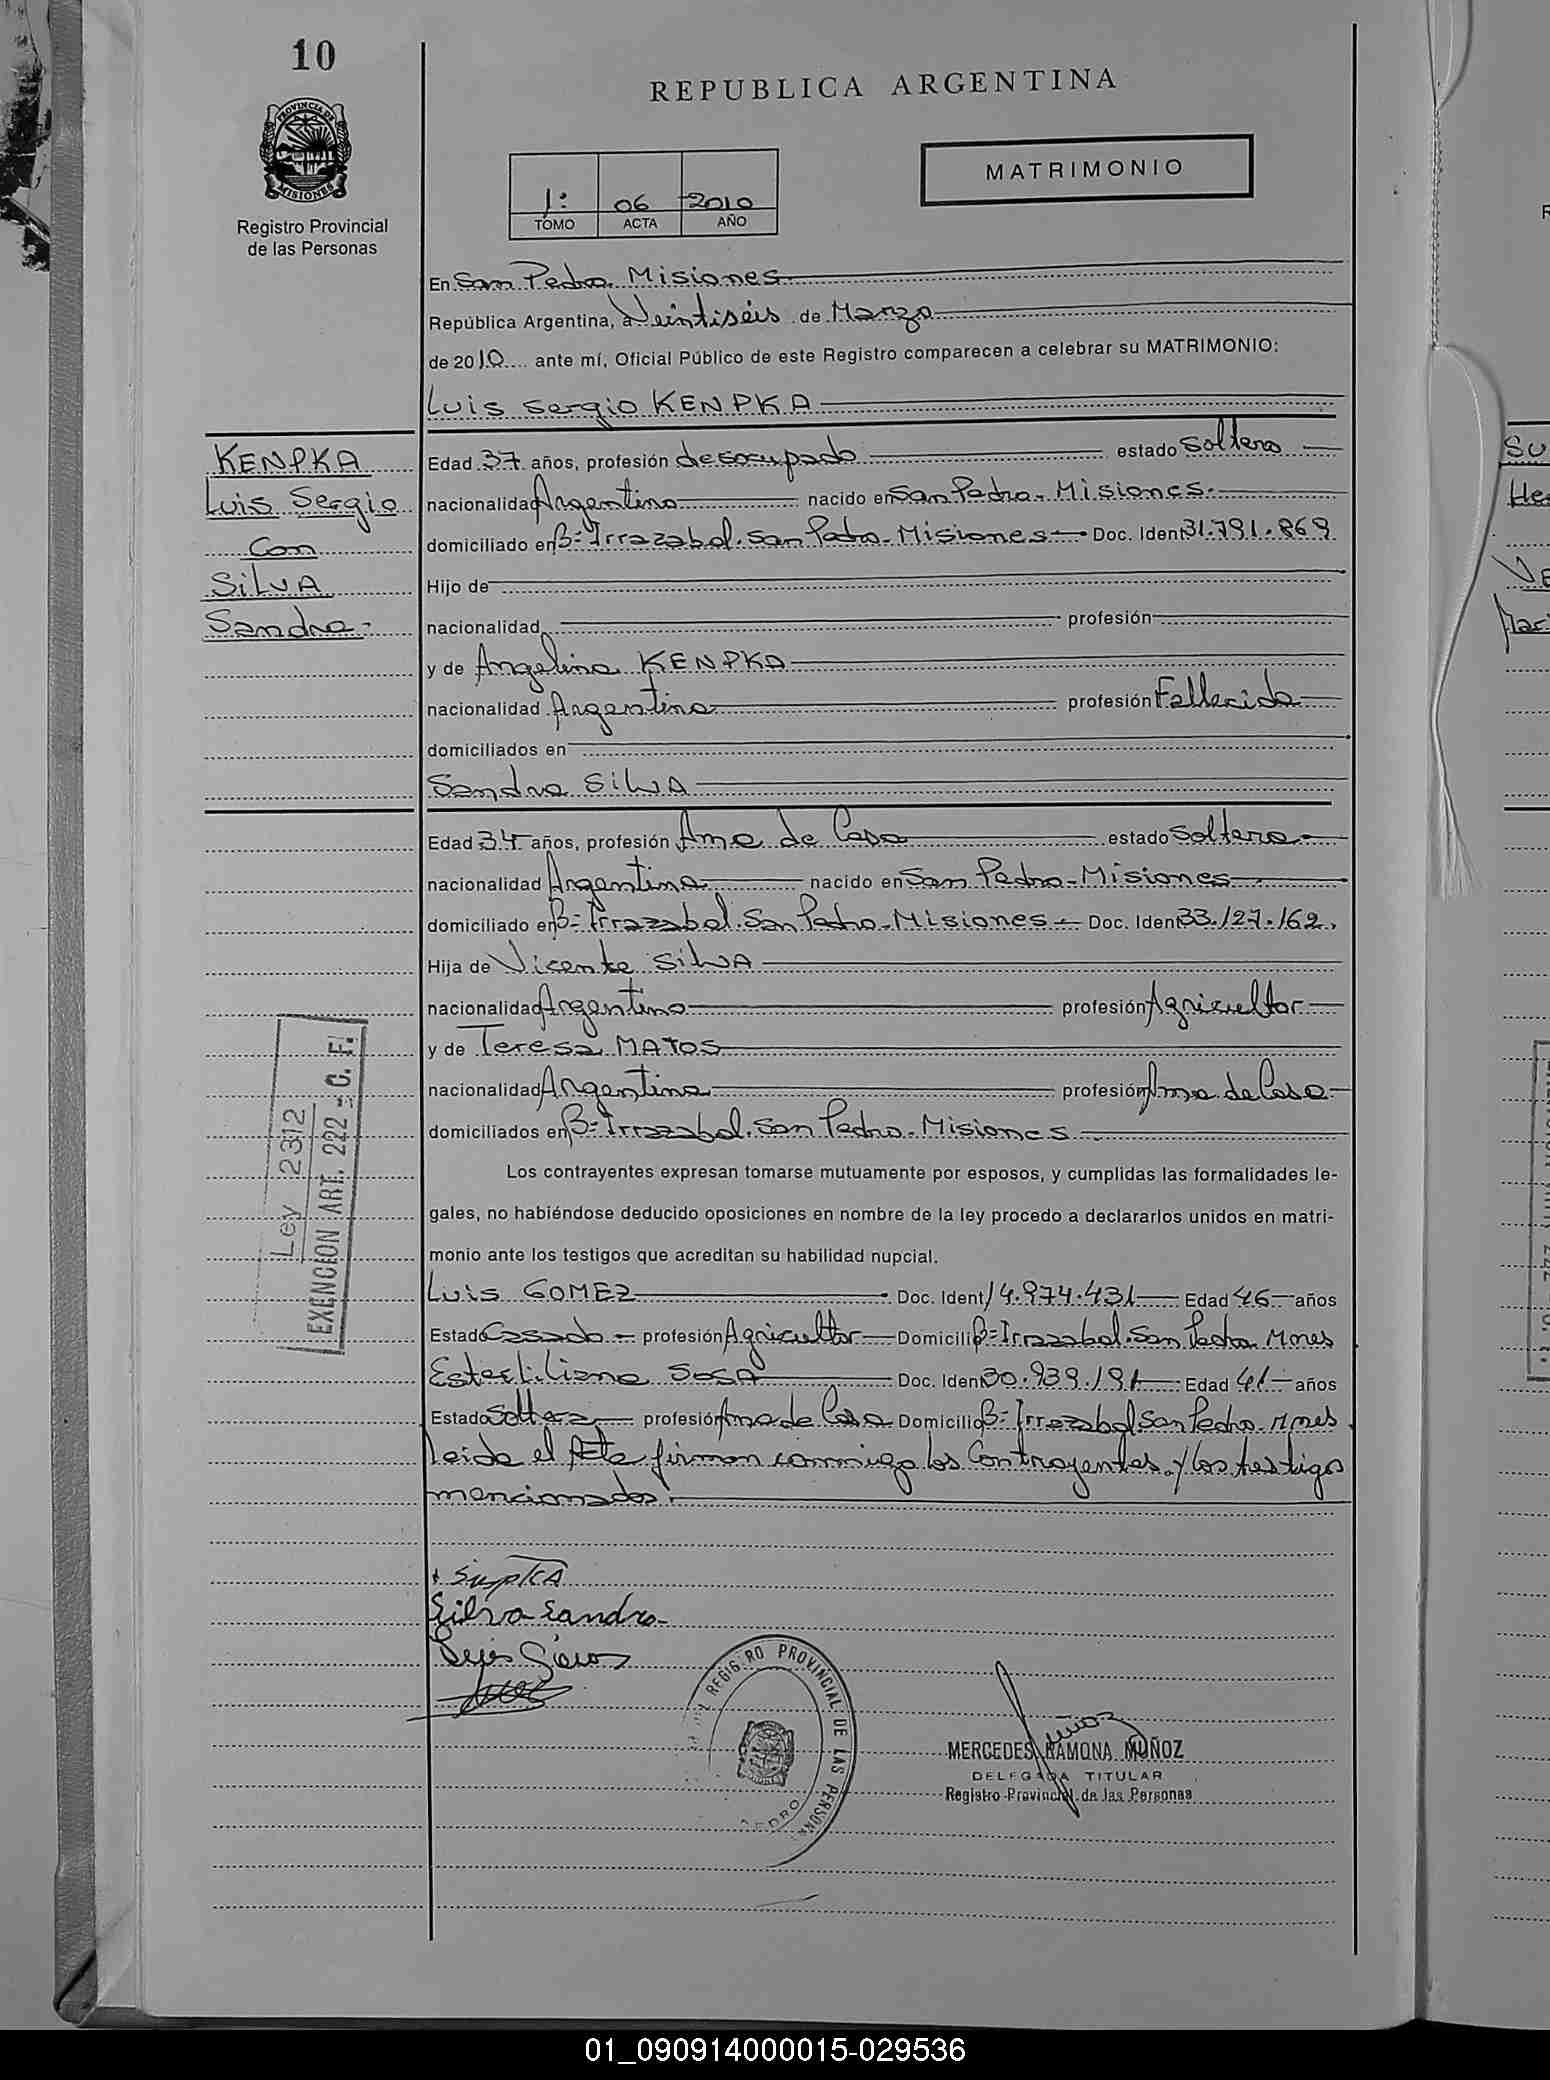 10
REPUBLICA ARGENTINA
PROVINCIA DE
MISIONES
MATRIMONIO
1: 06 2010
TOMO ACTA AÑO
Registro Provincial
de las Personas
En San Pedro Misiones
República Argentina, a Veintiséis de Marzo
de 2010 ante mí, Oficial Público de este Registro comparecen a celebrar su MATRIMONIO:
Luis Sergio KENPKA
KENPKA
Luis Sergio
Con
SILVA
Sandra-
Edad 37 años, profesión desocupado estado Soltero
nacionalidad Argentino nacido en San Pedro - Misiones.
domiciliado en Bº Irrazabal. San Pedro - Misiones - Doc. Ident 31.791.869
Hijo de
nacionalidad profesión
y de Angelina KENPKA
nacionalidad Argentina profesión Fallecida
domiciliados en
Sandra SILVA
Edad 34 años, profesión Ama de Casa estado Soltera -
nacionalidad Argentina nacido en San Pedro - Misiones
domiciliado en Bº Irrazabal. San Pedro - Misiones - Doc. Ident 33.127.162.
Hija de Vicente SILVA
nacionalidad Argentino profesión Agricultor
y de Teresa MATOS
nacionalidad Argentina profesión Ama de Casa
domiciliados en Bº Irrazabal. San Pedro - Misiones
Los contrayentes expresan tomarse mutuamente por esposos, y cumplidas las formalidades le-
gales, no habiéndose deducido oposiciones en nombre de la ley procedo a declararlos unidos en matri-
monio ante los testigos que acreditan su habilidad nupcial.
Ley 2312
EXENCION ART. 222 - C. F.
Luis GOMEZ Doc. Ident 14.974.431 Edad 46 años
Estado Casado - profesión Agricultor Domicilio Bº Irrazabal. San Pedro Mnes
SOSA Doc. Ident 30.939.191 Edad 41 años
Estado Soltera profesión Ama de Casa Domicilio Bº Irrazabal San Pedro Mnes.
Leida el Acta firman conmigo los Contrayentes y los testigos
mencionados.
Silva Sandra
REGISTRO PROVINCIAL DE LAS PERSON
PEDRO
Muñoz
MERCEDES RAMONA MUÑOZ
DELEGADA TITULAR
Registro Provincial de las Personas
01_090914000015-029536